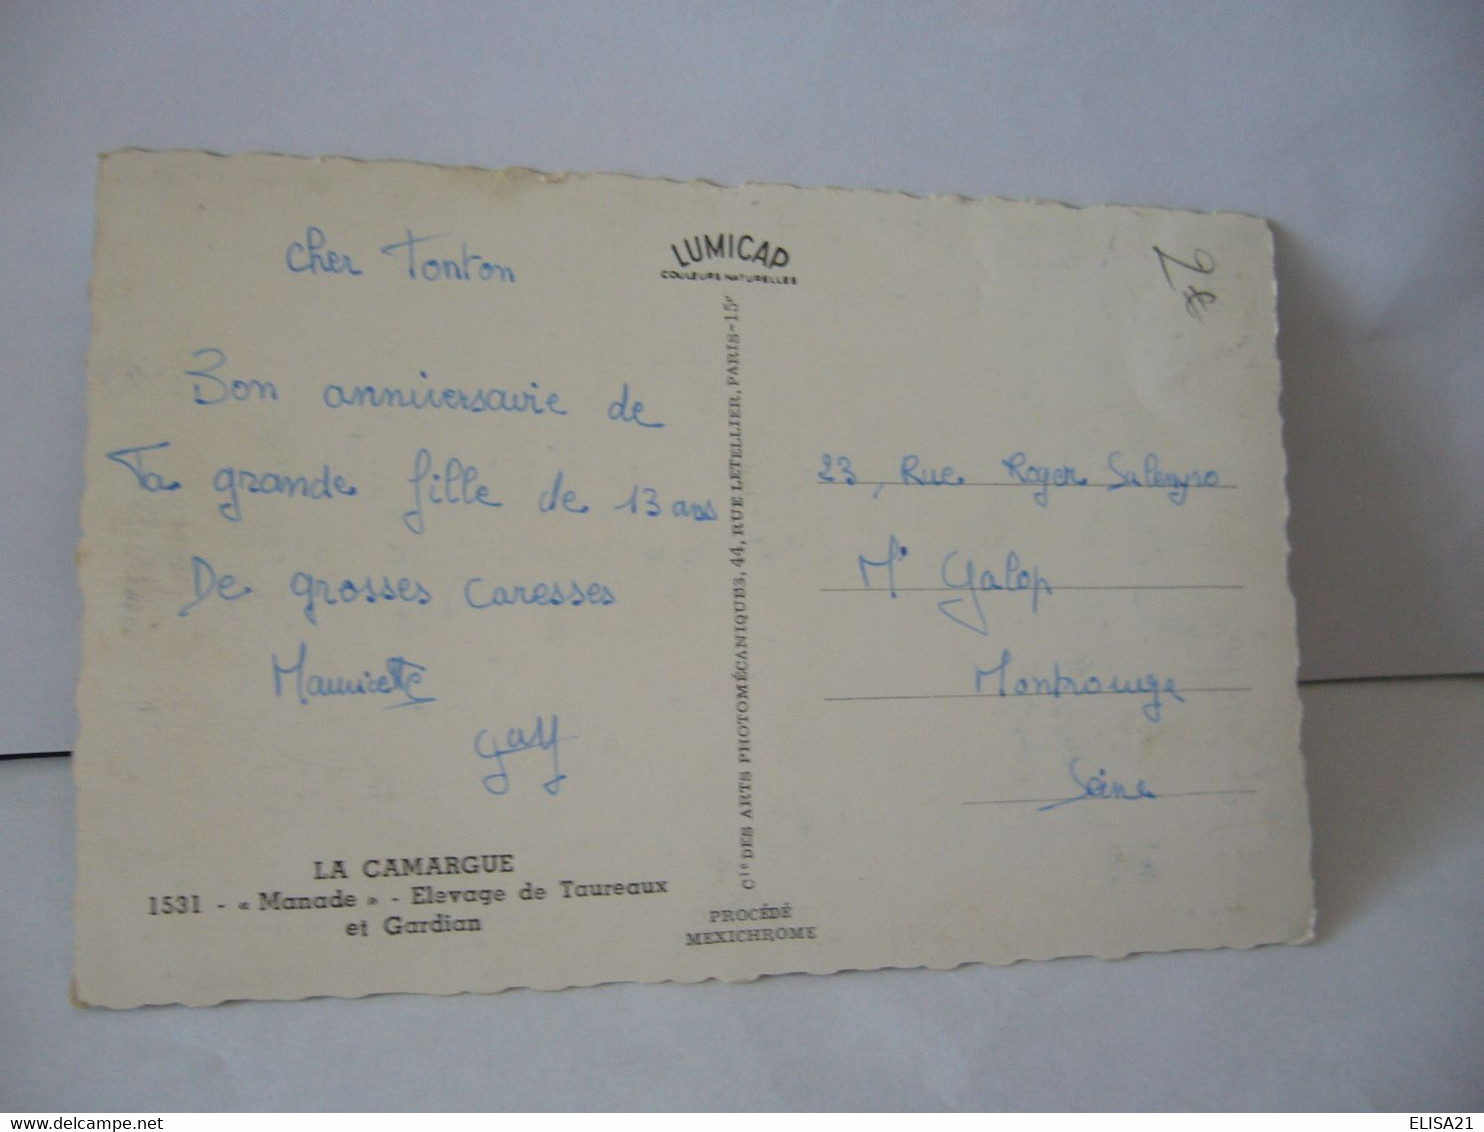 cher Tonton
Bon anniversaire de
Ta grande fille de 13 ans
De grosses caresses
Mauricette
Gaby
LA CAMARGUE
1531 - « Manade » - Elevage de Taureaux
et Gardian
LUMICAP
COULEURS NATURELLES
Cie DES ARTS PHOTOMÉCANIQUES, 44, RUE LETELLIER, PARIS-15e
PROCÉDÉ
MEXICHROME
23, Rue Roger Salengro
Mr Galop
Montrouge
Seine
delcampe.net
ELISA21